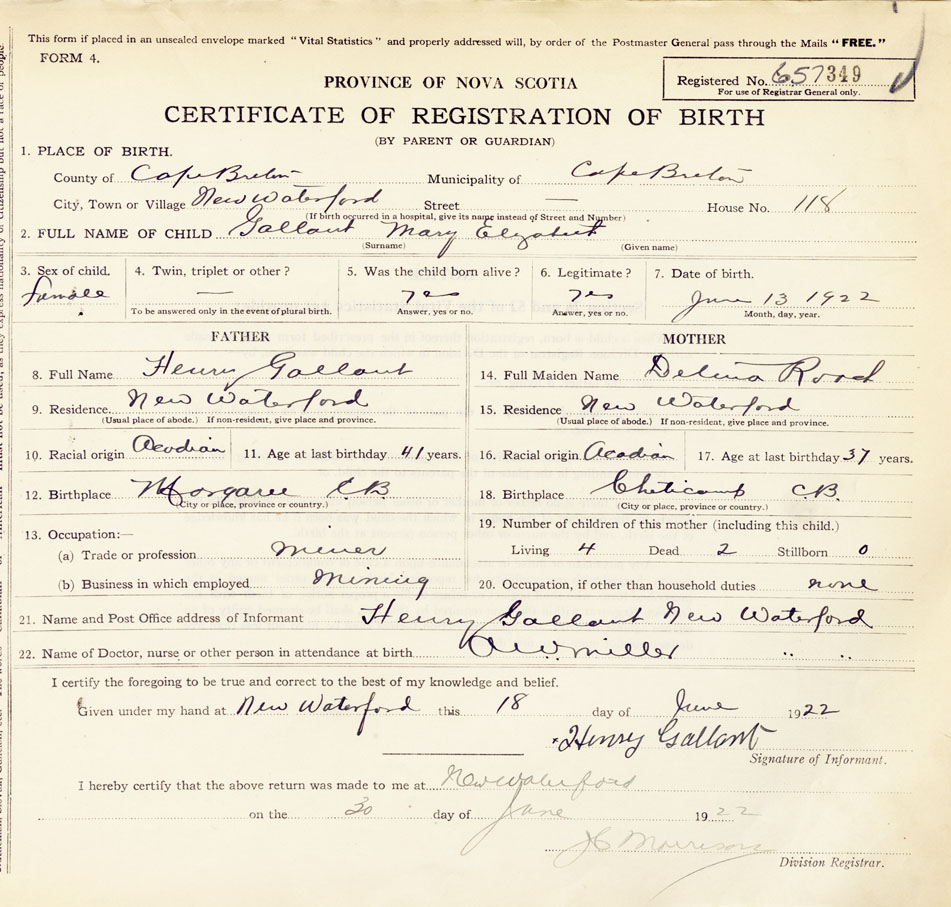 This form if placed in an unsealed envelope marked "Vital Statistics" and properly addressed will, by order of the Postmaster General pass through the Mails "FREE."
FORM 4.
PROVINCE OF NOVA SCOTIA
Registered No. 657349
For use of Registrar General only.
CERTIFICATE OF REGISTRATION OF BIRTH
(BY PARENT OR GUARDIAN)
1. PLACE OF BIRTH.
County of Cape Breton Municipality of Cape Breton
City, Town or Village New Waterford Street — House No. 118
(If birth occurred in a hospital, give its name instead of Street and Number)
2. FULL NAME OF CHILD Gallant Mary Elizabeth
(Surname) (Given name)
3. Sex of child. 4. Twin, triplet or other? 5. Was the child born alive? 6. Legitimate? 7. Date of birth.
female — yes yes June 13 1922
To be answered only in the event of plural birth. Answer, yes or no. Answer, yes or no. Month, day, year.
FATHER MOTHER
8. Full Name Henry Gallant 14. Full Maiden Name Delina Roach
9. Residence New Waterford 15. Residence New Waterford
(Usual place of abode.) If non-resident, give place and province. (Usual place of abode.) If non-resident, give place and province.
10. Racial origin Acadian 11. Age at last birthday 41 years. 16. Racial origin Acadian 17. Age at last birthday 37 years.
12. Birthplace Margaree C.B. 18. Birthplace Cheticamp C.B.
(City or place, province or country.) (City or place, province or country.)
13. Occupation:— 19. Number of children of this mother (including this child.)
(a) Trade or profession miner Living 4 Dead 2 Stillborn 0
(b) Business in which employed Mining 20. Occupation, if other than household duties none
21. Name and Post Office address of Informant Henry Gallant New Waterford
22. Name of Doctor, nurse or other person in attendance at birth miller " "
I certify the foregoing to be true and correct to the best of my knowledge and belief.
Given under my hand at New Waterford this 18 day of June 1922
Henry Gallant
Signature of Informant.
I hereby certify that the above return was made to me at New Waterford
on the 30 day of June 1922
Morrison
Division Registrar.